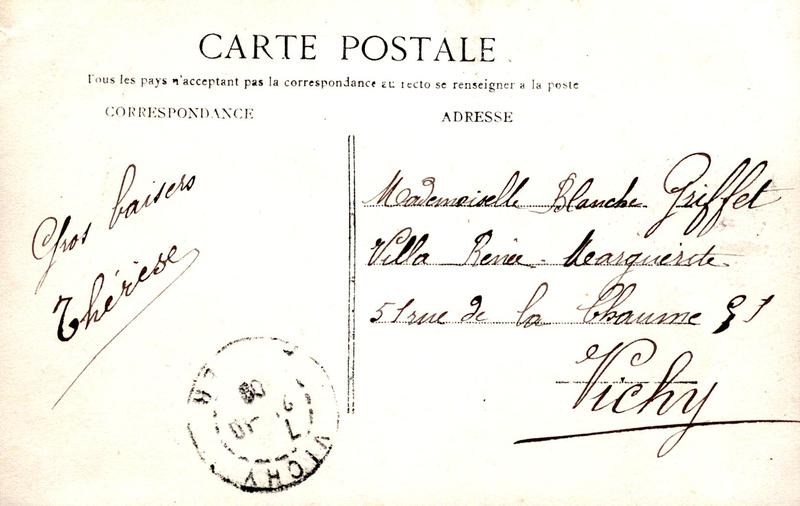 CARTE POSTALE
Tous les pays n'acceptant pas la correspondance au recto se renseigner a la poste
CORRESPONDANCE
ADRESSE
Gros baisers
Thérèse
Mademoiselle Blanche Griffet
Villa Renée-Marguerite
51 rue de la Chaume 51
Vichy
VICHY